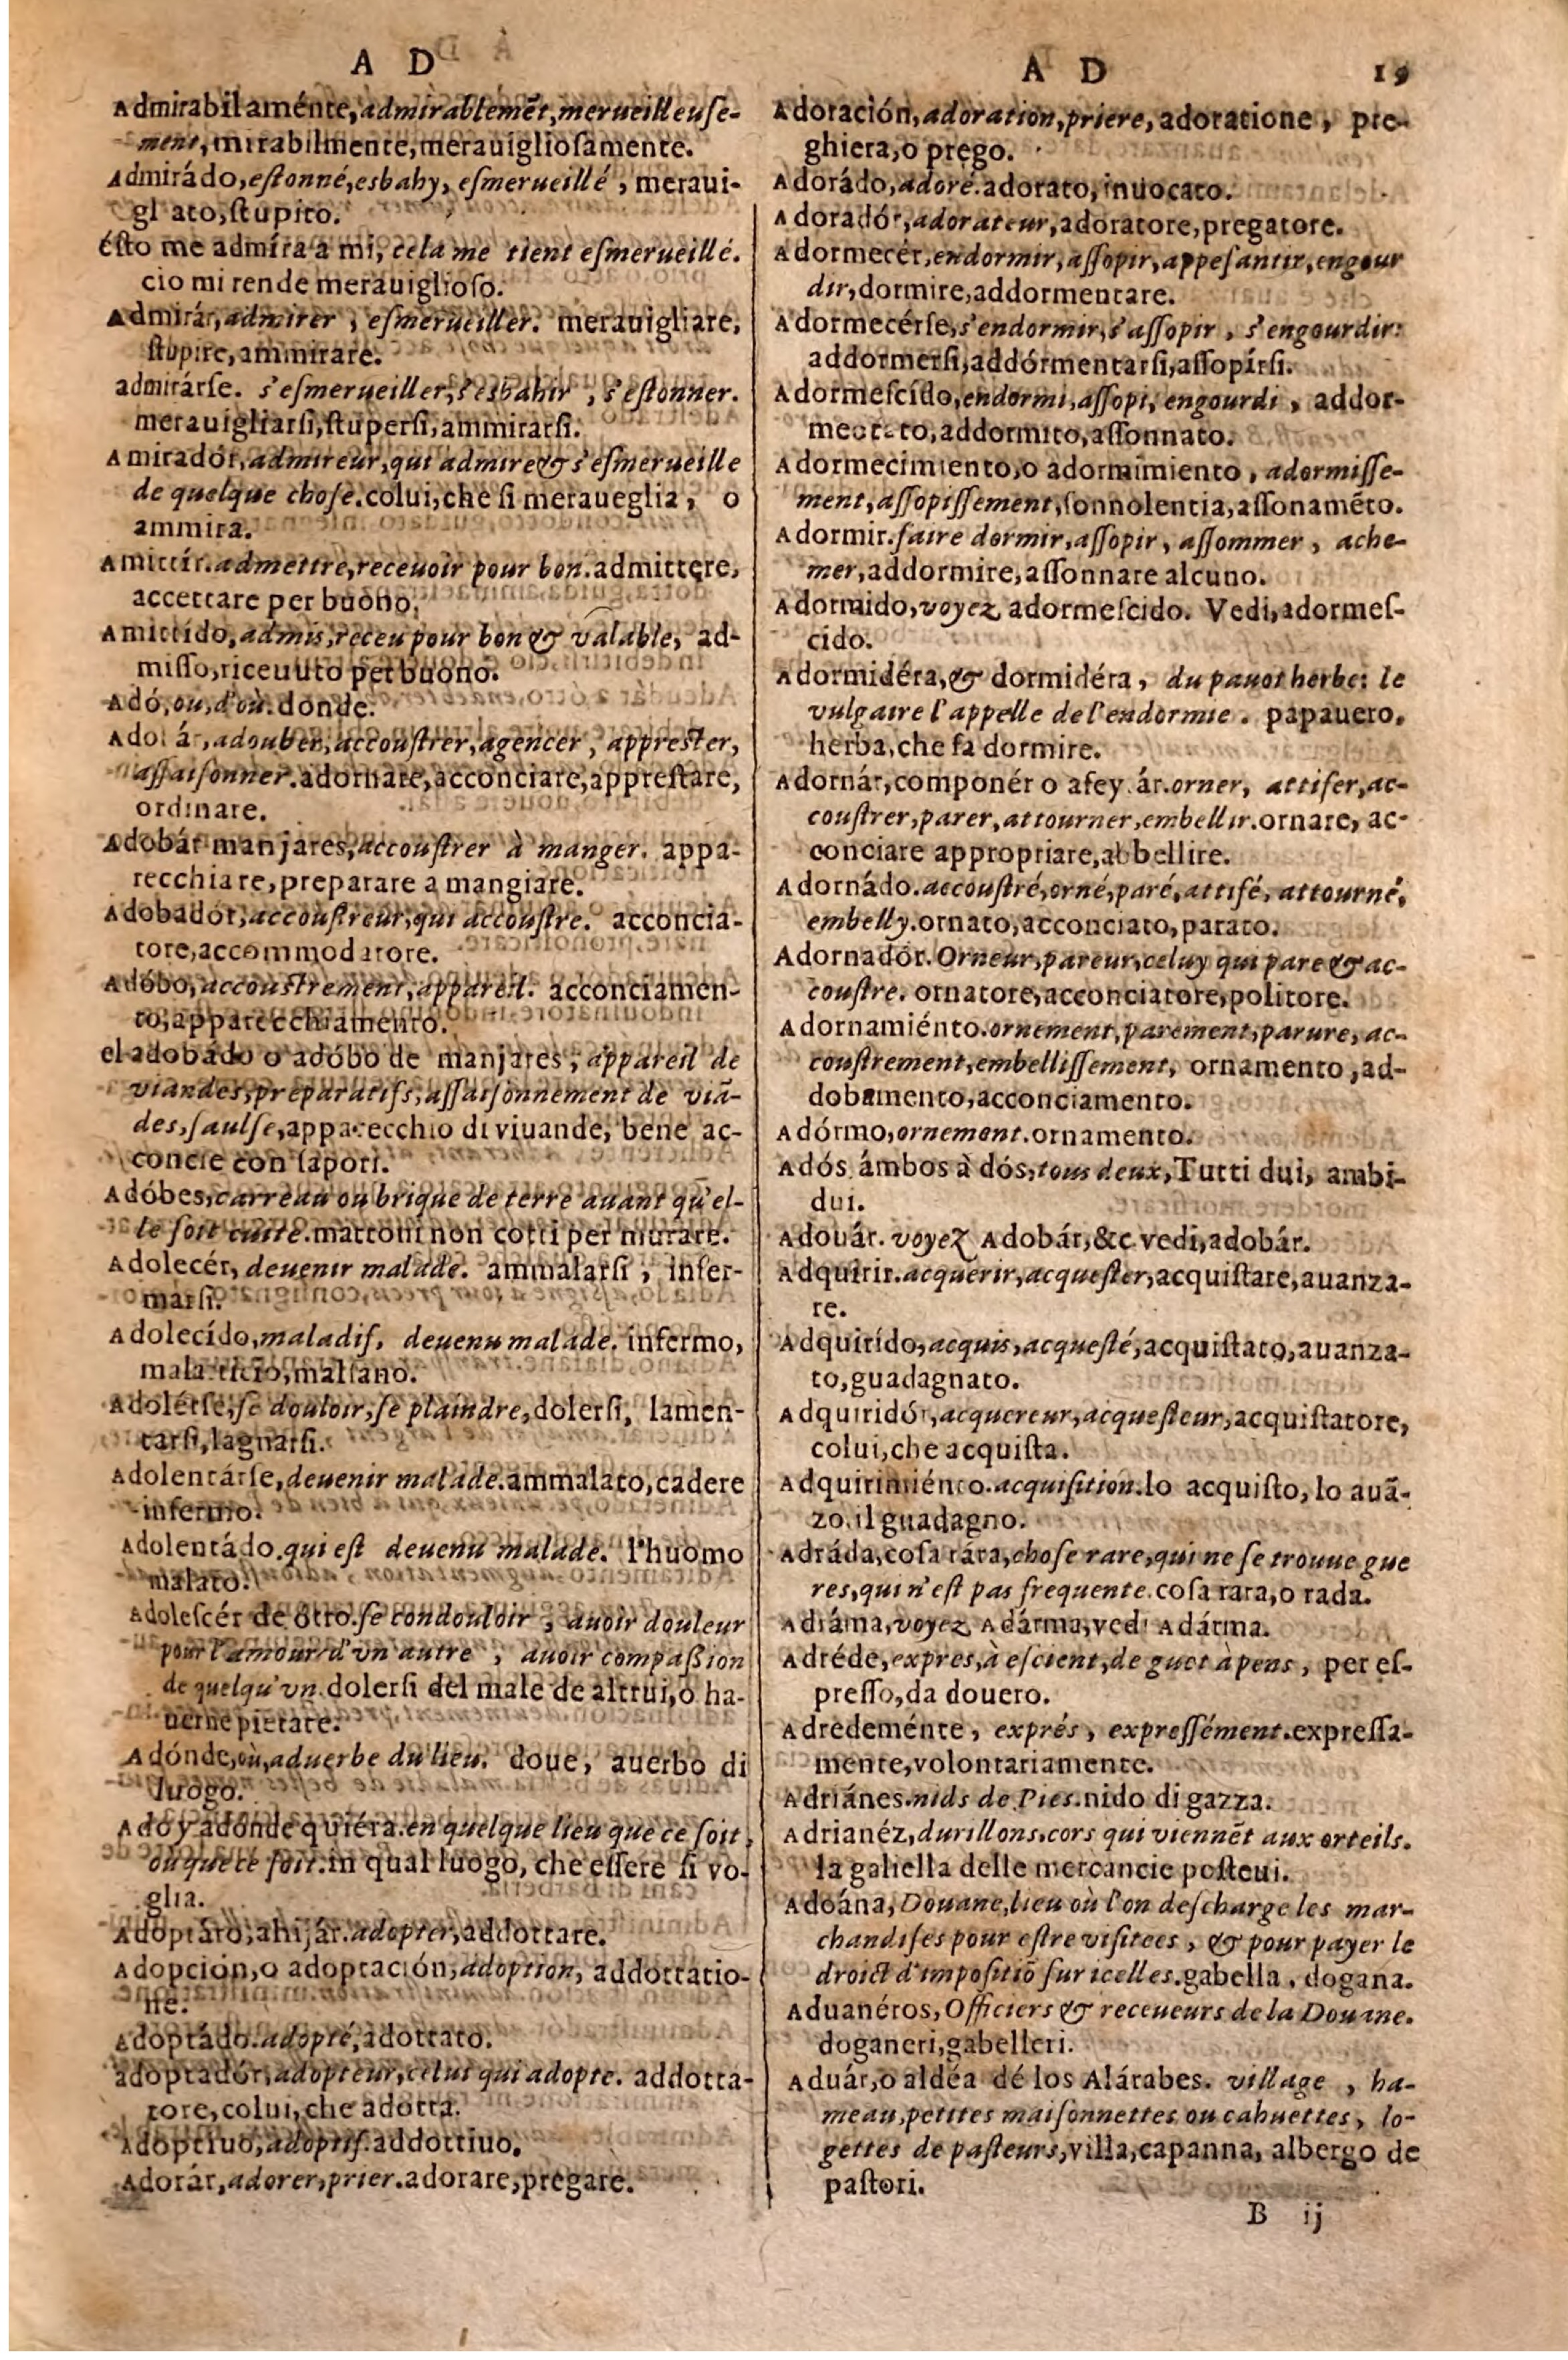 A D
Admirabilaménte, admirablemēt, merueilleuse-
ment, mirabilmente, merauigliosamente.
Admirádo, estonné, esbahy, esmerueillé, meraui-
gl ato, stupito.
ésto me admíra a mi, cela me tient esmerueillé.
cio mi rende merauiglioso.
Admirár, admirer, esmerueiller. merauigliare,
stupire, ammirare.
admirárse. s'esmerueiller, s'esbahir, s'estonner.
merauigliarsi, stupersi, ammirarsi.
Amiradór, admireur, qui admire & s'esmerueille
de quelque chose. colui, che si meraueglia, o
ammira.
Amittír. admettre, receuoir pour bon. admittere,
accettare per buono.
Amittído, admis, receu pour bon & valable, ad-
misso, riceuuto per buono.
Adó, ou, d'où. donde.
Ado ár, adouber, accoustrer, agencer, apprester,
assaisonner. adornare, acconciare, apprestare,
ordinare.
Adobár manjares, accoustrer à manger. appa-
recchiare, preparare a mangiare.
Adobadór, accoustreur, qui accoustre. acconcia-
tore, accommodatore.
Adóbo, accoustrement, appareil. acconciamen-
to, apparecchiamento.
el adobádo o adóbo de manjares, appareil de
viandes, preparatifs, assaisonnement de viā-
des, saulse, apparecchio di viuande, bene ac-
concie con sapori.
Adóbes, carreau ou brique de terre auant qu'el-
le soit cuite. mattoni non cotti per murare.
Adolecér, deuenir malade. ammalarsi, infer-
marsi.
Adolecído, maladif, deuenu malade. infermo,
mala ticio, malsano.
Adolérse, se douloir, se plaindre, dolersi, lamen-
tarsi, lagnarsi.
Adolentárse, deuenir malade. ammalato, cadere
infermo.
Adolentádo. qui est deuenu malade. l'huomo
malato.
Adolescér de otro. se condouloir, auoir douleur
pour l'amour d'vn autre, auoir compaßion
de quelqu'vn. dolersi del male de altrui, o ha-
uerne pietate.
Adónde, où, aduerbe du lieu. doue, auerbo di
luogo.
Adó y adónde quiéra. en quelque lieu que ce soit,
ou que ce soit. in qual luogo, che essere si vo-
glia.
Adoptáro, ahijár. adopter, addottare.
Adopción, o adoptación, adoption, addottatio-
ne.
Adoptádo. adopté, adottato.
adoptadór, adopteur, celui qui adopte. addotta-
tore, colui, che adotta.
Adoptiuo, adoptif. addottiuo.
Adorár, adorer, prier. adorare, pregare.
A D 19
Adoración, adoration, priere, adoratione, pre-
ghiera, o prego.
Adorádo, adoré. adorato, inuocato.
Adoradór, adorateur, adoratore, pregatore.
Adormecér, endormir, assopir, appesantir, engour
dir, dormire, addormentare.
Adormecérse, s'endormir, s'assopir, s'engourdir:
addormersi, addórmentarsi, assopírsi.
Adormescído, endormi, assopi, engourdi, addor-
mentato, addormito, assonnato.
Adormecimiento, o adormimiento, adormisse-
ment, assopissement, sonnolentia, assonamēto.
Adormir. faire dormir, assopir, assommer, ache-
mer, addormire, assonnare alcuno.
Adormido, voyez adormescido. Vedi, adormes-
cido.
Adormidéra, & dormidéra, du pauot herbe: le
vulgaire l'appelle de l'endormie. papauero,
herba, che fa dormire.
Adornár, componér o afey ár. orner, attifer, ac-
coustrer, parer, attourner, embellir. ornare, ac-
conciare appropriare, abbellire.
Adornádo. accoustré, orné, paré, attifé, attourné,
embelly. ornato, acconciato, parato.
Adornadór. Orneur, pareur, celuy qui pare & ac-
coustre. ornatore, acconciatore, politore.
Adornamiénto. ornement, parement, parure, ac-
coustrement, embellissement, ornamento, ad-
dobamento, acconciamento.
Adórmo, ornement. ornamento.
Adós, ámbos à dós, tous deux, Tutti dui, ambi-
dui.
Adouár. voyez Adobár, &c. vedi, adobár.
Adquirir. acquerir, acquester, acquistare, auanza-
re.
Adquirído, acquis, acquesté, acquistato, auanza-
to, guadagnato.
Adquiridór, acquereur, acquesteur, acquistatore,
colui, che acquista.
Adquirimiénto. acquisition. lo acquisto, lo auā-
zo. il guadagno.
Adráda, cosa rára, chose rare, qui ne se trouue gue
res, qui n'est pas frequente. cosa rara, o rada.
Adráma, voyez Adárma, vedi Adárma.
Adréde, expres, à escient, de guet à pens, per es-
presso, da douero.
Adredeménte, exprés, expressément. expressa-
mente, volontariamente.
Adriánes. nids de Pies. nido di gazza.
Adrianéz, durillons, cors qui viennēt aux orteils.
la gabella delle mercancie posteui.
Adoána, Douane, lieu où l'on descharge les mar-
chandises pour estre visitees, & pour payer le
droict d'impositiō sur icelles. gabella, dogana.
Aduanéros, Officiers & receueurs de la Douane.
doganeri, gabelleri.
Aduár, o aldéa dé los Alárabes. village, ha-
meau, petites maisonnettes ou cahuettes, lo-
gettes de pasteurs, villa, capanna, albergo de
pastori.
B ij